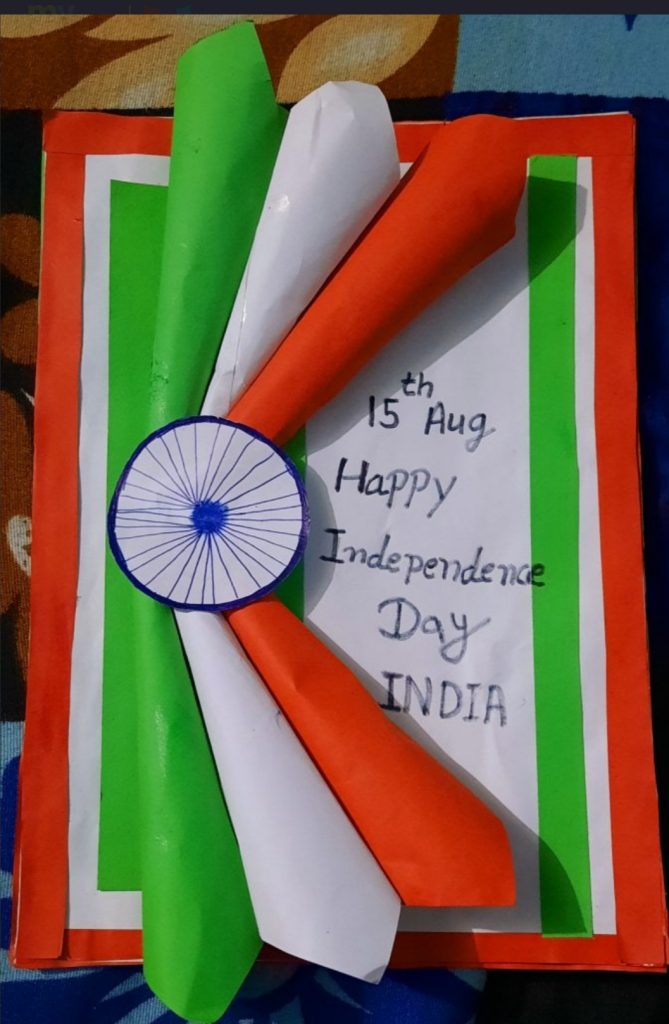 15th Aug
Happy
Independence
Day
INDIA